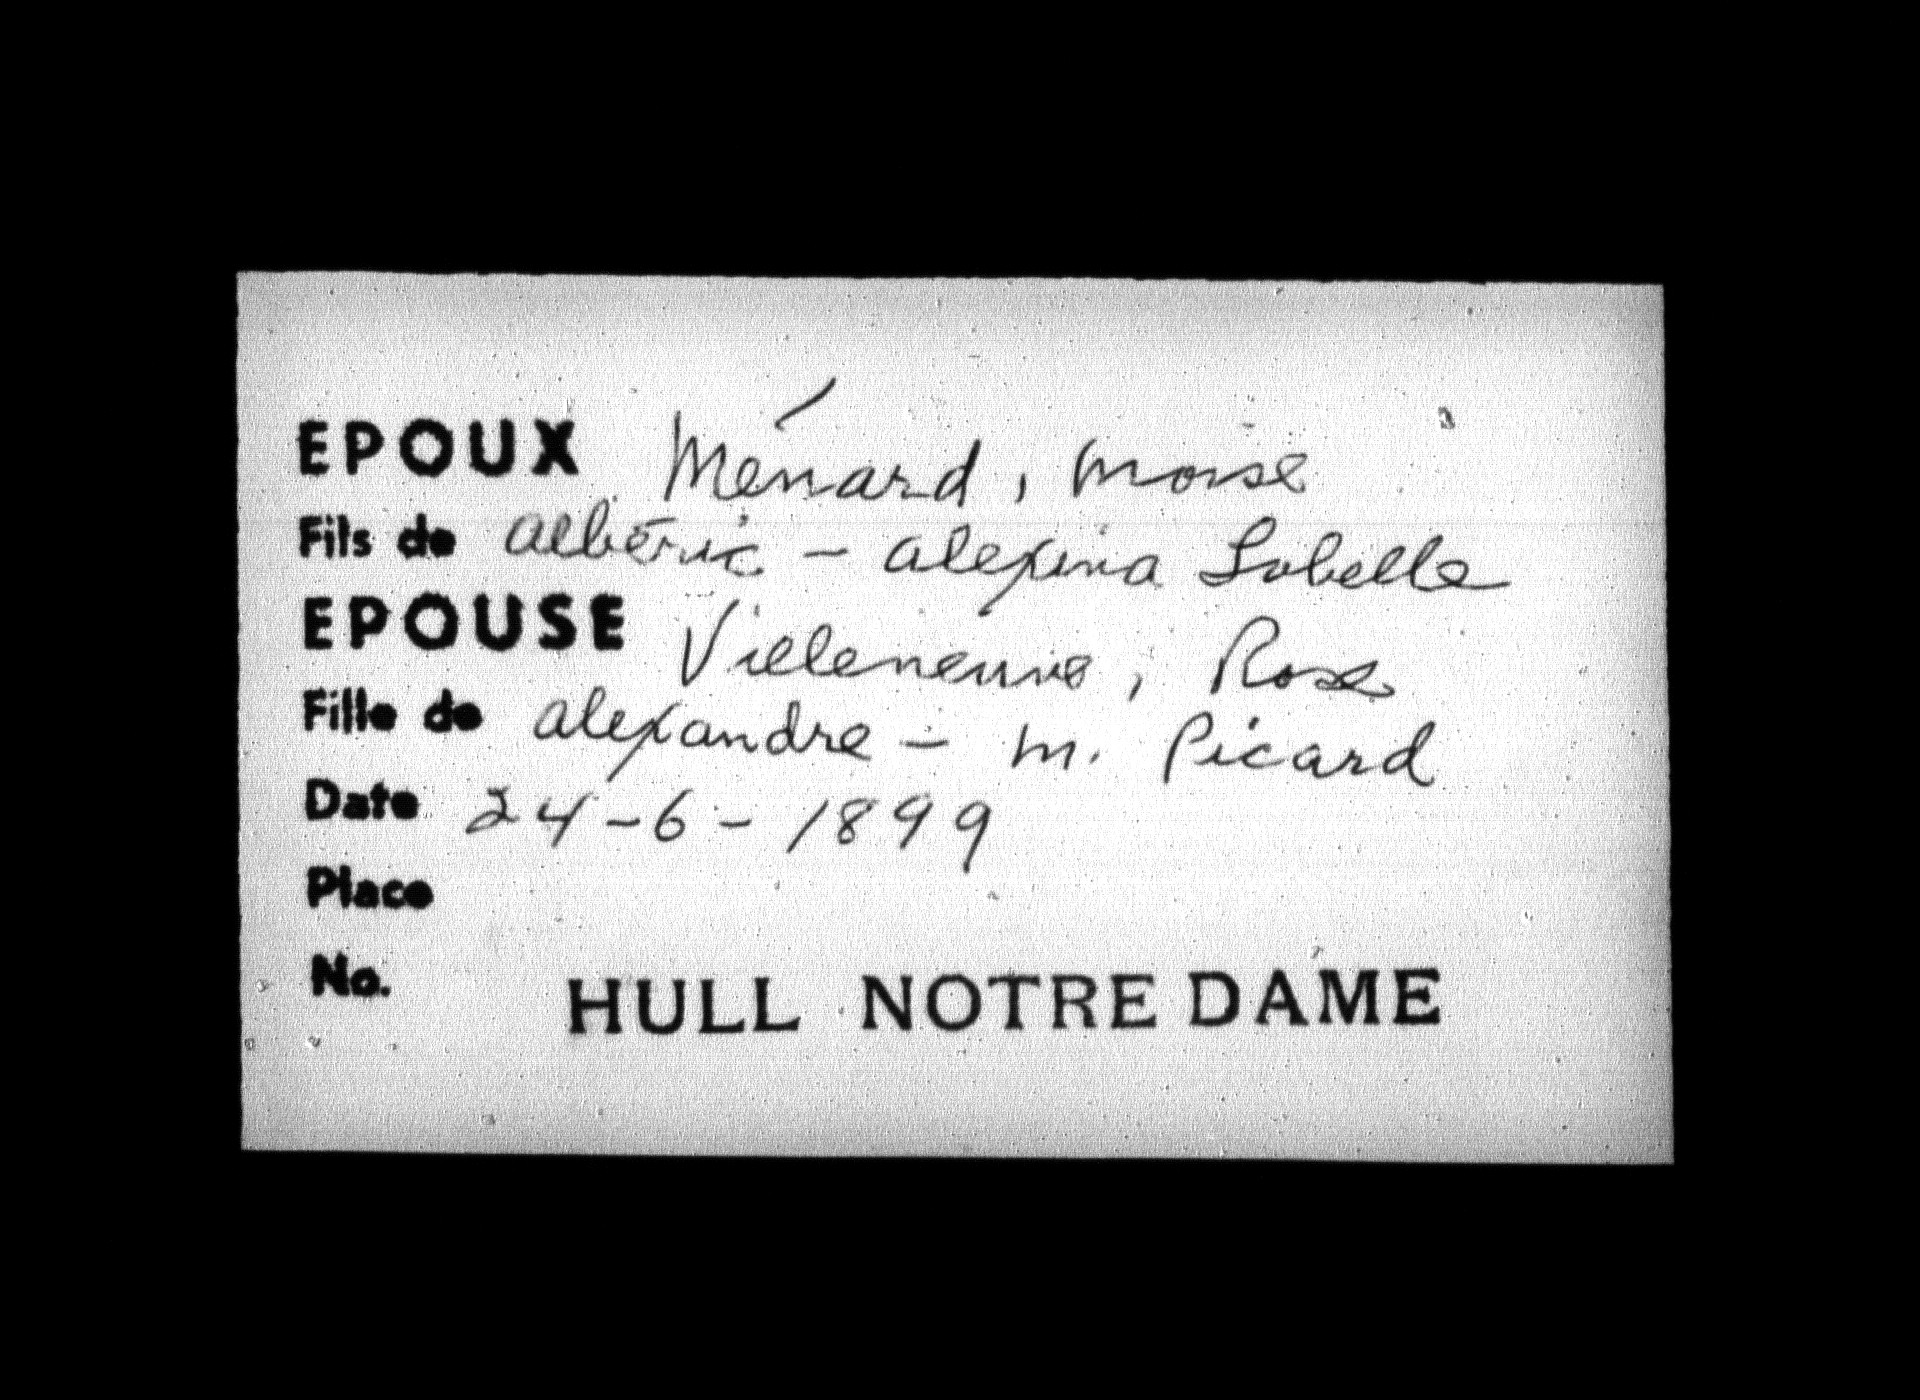 EPOUX Ménard, Moise
Fils de Albéric - Alexina Labelle
EPOUSE Villeneuve, Rose
Fille de Alexandre - M. Picard
Date 24-6-1899
Place
No.
HULL NOTRE DAME